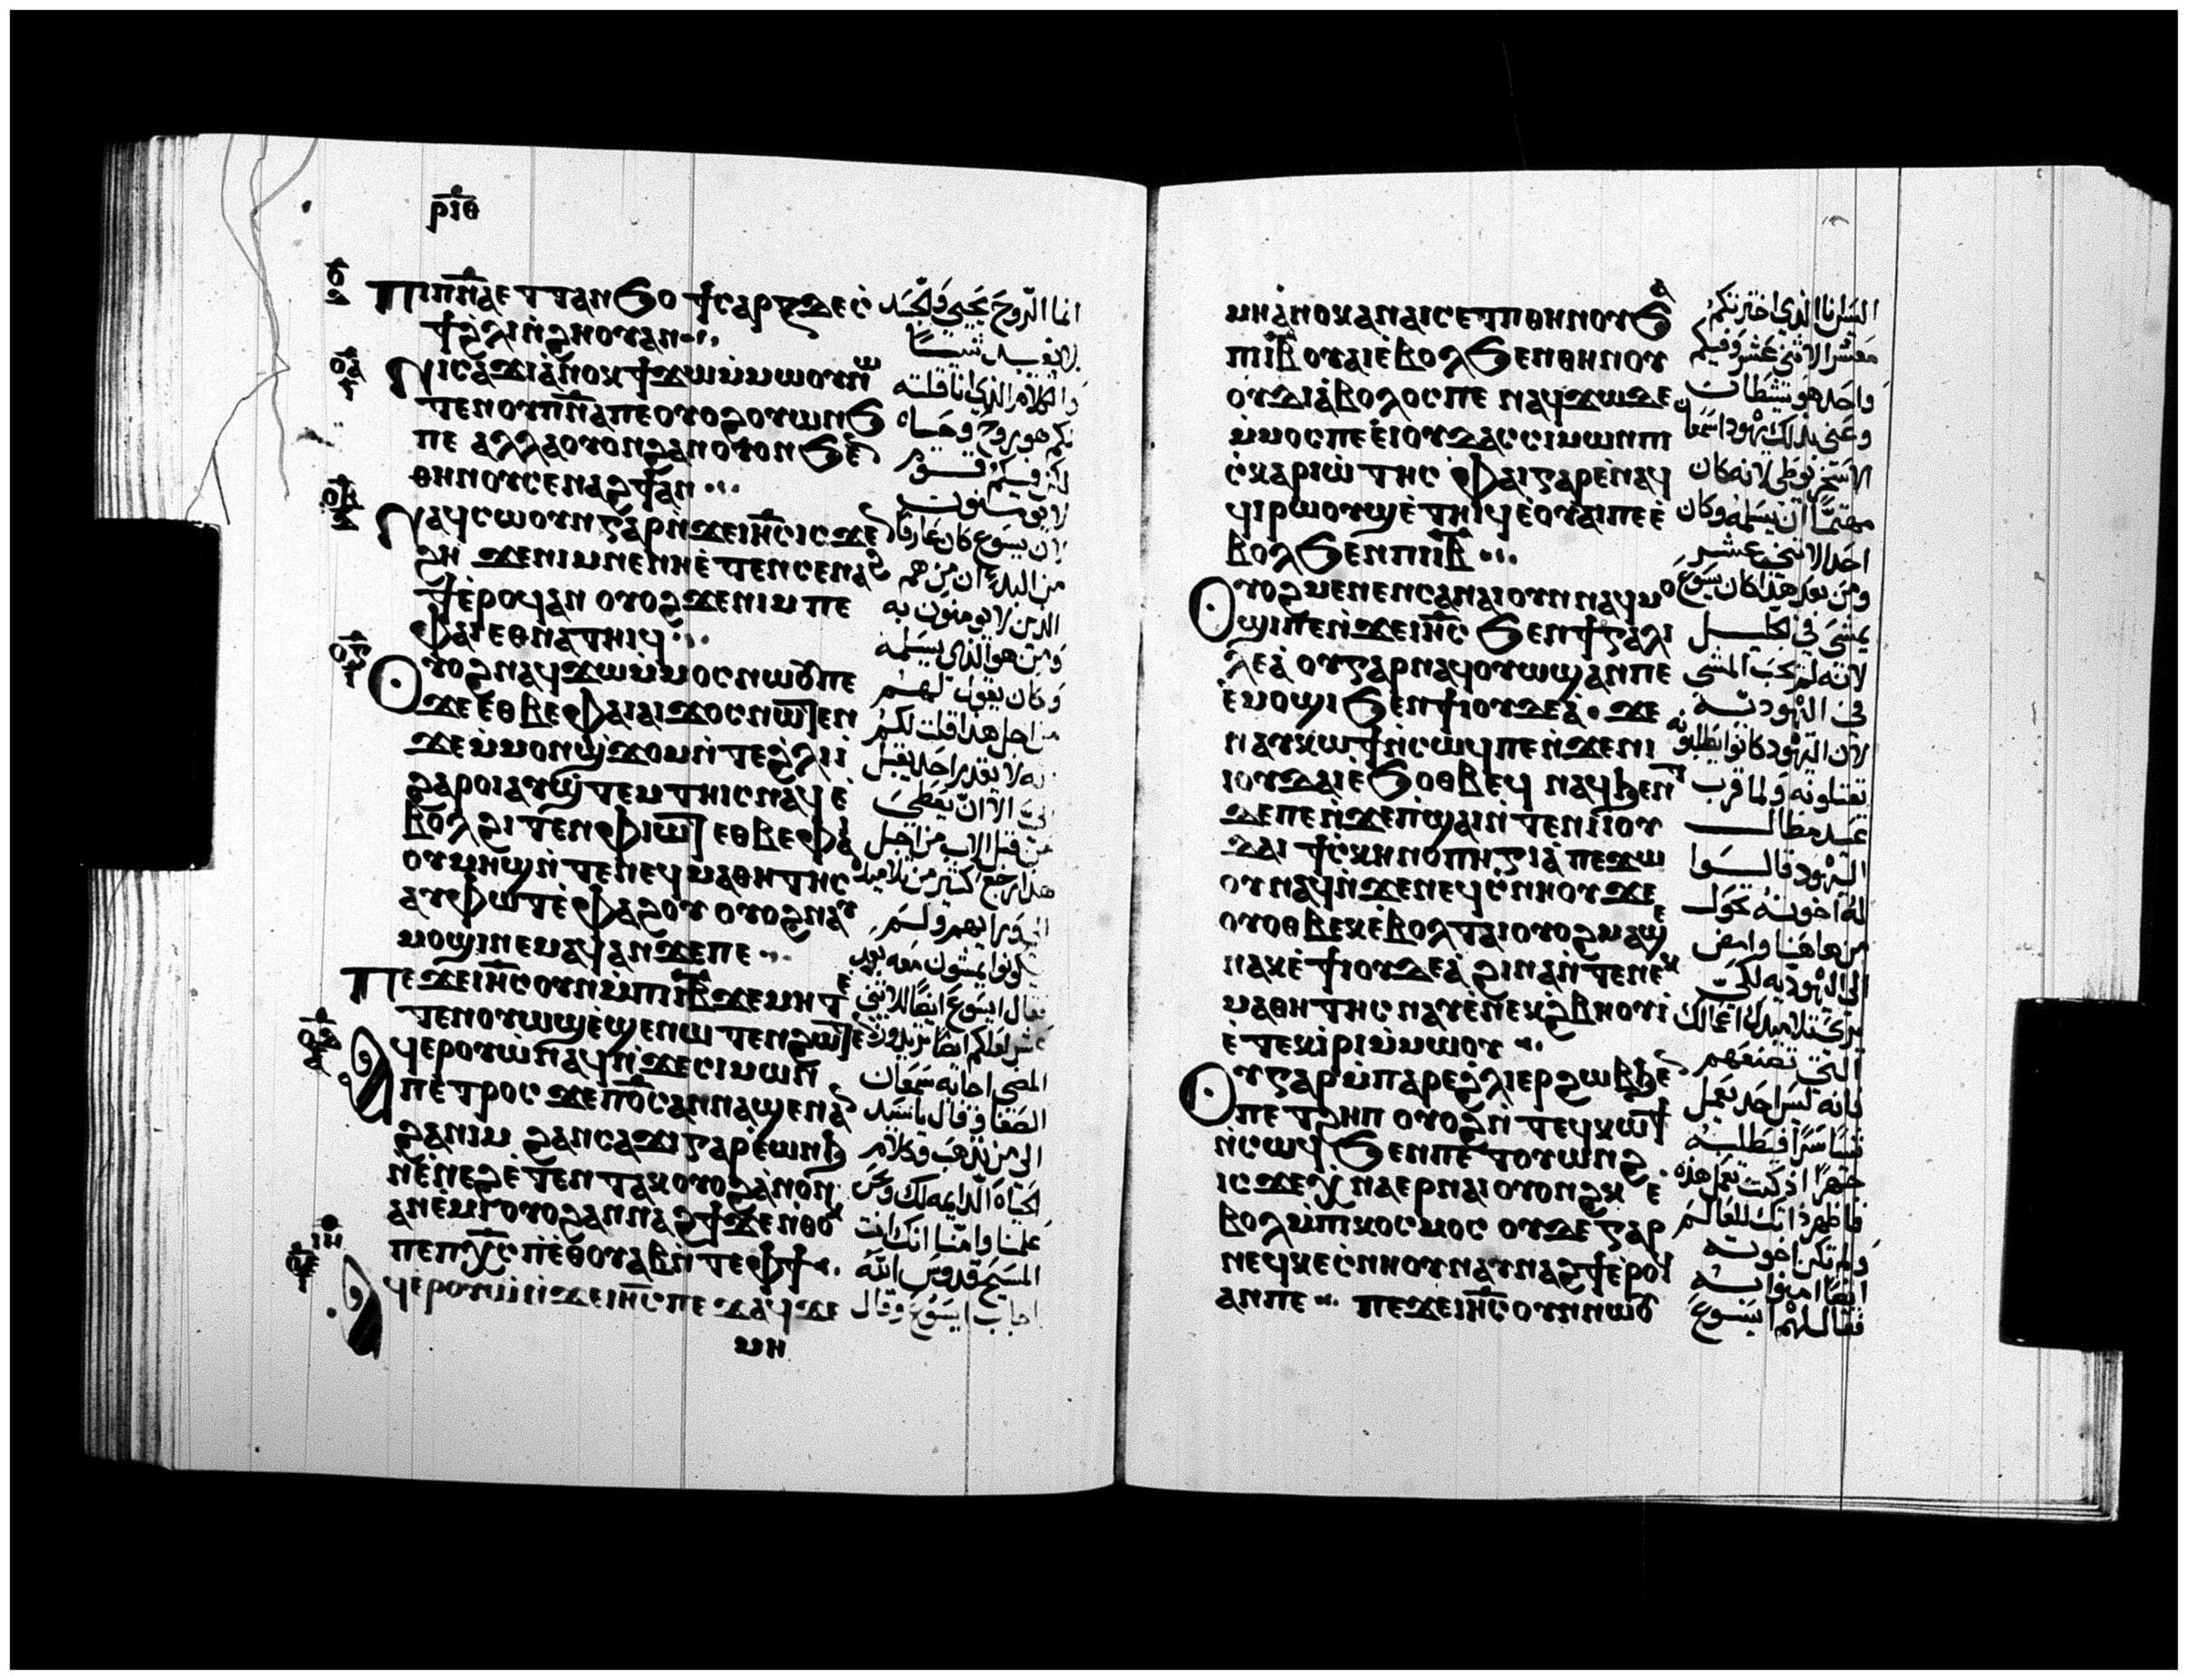 ⲣ̅ⲓ̅ⲑ̅
Ⲡⲓⲡ̅ⲛ̅ⲁ̅ⲉⲧⲧⲁⲛϧⲟ ϯⲥⲁⲣⲝϫⲉⲥ̀
ϯϩ̀ⲗⲓⲛ̀ϩⲏⲟⲩⲁⲛ
Ⲛⲓⲥⲁϫⲓⲁ̀ⲛⲟⲕϯϫⲱⲙ̀ⲙⲱⲟⲩⲛⲱ
ⲧⲉⲛⲟⲩⲡ̅ⲛ̅ⲁ̅ⲡⲉⲟⲩⲟϩⲟⲩⲱⲛϧ
ⲡⲉ ⲁⲗⲗⲁⲟⲩⲟⲛϩⲁⲛⲟⲩⲟⲛϧⲉ̀
ⲑⲏⲛⲟⲩⲥⲉⲛⲁϩϯⲁⲛ
Ⲛⲁϥⲥⲱⲟⲩⲛⲅⲁⲣⲛ̀ϫⲉⲓⲏ̅ⲥ̅ⲓⲥϫⲉ
ϩⲏ ϫⲉⲛⲓⲙⲛⲉⲛⲏⲉ̀ⲧⲉⲛⲥⲉⲛⲁϩ
ϯⲉ̀ⲣⲟϥⲁⲛ ⲟⲩⲟϩϫⲉⲛⲓⲙ ⲡⲉ
ⲫⲁⲓⲉⲑⲛⲁⲧⲏⲓϥ
Ⲟⲩⲟϩⲛⲁϥϫⲱⲙ̀ⲙⲟⲥⲛⲱⲟⲩⲡⲉ
ϫⲉⲉⲑⲃⲉⲫⲁⲓⲁⲓϫⲟⲥⲛⲱⲧⲉⲛ
ϫⲉⲙ̀ⲙⲟⲛϣ̀ϫⲟⲙⲛ̀ⲧⲉϩ̀ⲗⲓⲓ̀
ϩⲁⲣⲟⲓⲁⲩϣ̀ⲧⲉⲙⲧⲏⲓⲥⲛⲁϥⲉ̀
ⲃⲟⲗϩⲓⲧⲉⲛⲫⲓⲱⲧ ⲉⲑⲃⲉⲫⲁⲓ
ⲟⲩⲙⲏϣⲛ̀ⲧⲉⲛⲉϥⲙⲁⲑⲏⲧⲏⲥ
ⲁⲩⲫⲱⲧⲉ̀ⲫⲁϩⲟⲩ ⲟⲩⲟϩⲛⲁⲩ
ⲙⲟϣⲓⲛⲉⲙⲁϥⲁⲛϫⲉⲡⲉ
Ⲡⲉϫⲉⲓⲏ̅ⲥ̅ⲟⲩⲛⲙ̀ⲡⲓⲓ̅ⲃ̅ϫⲉⲙⲏⲧⲉ
ⲧⲉⲛⲟⲩⲱϣⲉ̀ϣⲉⲛⲱⲧⲉⲛϩⲱⲧⲉⲛ
Ⲁϥⲉⲣⲟⲩⲱ̀ⲛⲁϥⲛ̀ϫⲉⲥⲓⲙⲱⲛ
ⲡⲉⲧⲣⲟⲥ ϫⲉⲡ̅ⲟ̅ⲥ̅ⲁⲛⲛⲁϣⲉⲛⲁ
ϩⲁⲛⲓⲙ ϩⲁⲛⲥⲁϫⲓⲅⲁⲣⲉ̀ⲱⲛϧ
ⲛ̀ⲉ̀ⲛⲉϩⲉ̀ⲧⲉⲛⲧⲁⲕⲟⲩⲟϩⲁ̀ⲛⲟⲛ
ⲁⲛⲉ̀ⲙⲓⲟⲩⲟϩⲁⲛⲛⲁϩϯϫⲉⲛ̀ⲑⲟⲕ
ⲡⲉⲡⲭ̅ⲥ̅ⲡⲉ̀ⲑⲟⲩⲁⲃⲛ̀ⲧⲉⲫϯ
Ⲁϥⲉⲣⲟⲩⲱ̀ⲛ̀ϫⲉⲓⲏ̅ⲥ̅ⲡⲉϫⲁϥϫⲉ
ⲙⲏ
انما الروح يحيي والجسد
لا يفيد شيئا
والكلام الذي انا قلته
لكم هو روح وحياه
لكن فيكم قوم
لا يومنون
لان يسوع كان عارفا
من البدء ان من هم
الذين لا يومنون به
ومن هو الذي يسلمه
وكان يقول لهم
من اجل هذا قلت لكم
انه لا يقدر احد يقبل
الي الا ان يعطى
من قبل الاب من اجل
هذا رجع كثير من تلاميذه
الى ورايهم ولم
يكونوا يمشون معه بعد
فقال ايسوع ايضا للاثني
عشر لعلكم ايضا تريدون
المضي اجابه سمعان
الصفا وقال يا سيد
الى من نذهب وكلام
الحياه الدايمه لك ونحن
علمنا وامنا انك انت
المسيح قدوس الله
اجاب ايسوع وقال
ⲙⲏⲁ̀ⲛⲟⲕⲁⲛⲁⲓⲥⲉⲧⲡⲑⲏⲛⲟⲩϧⲁ
ⲡⲓⲓ̅ⲃ̅ ⲟⲩⲁⲓⲉ̀ⲃⲟⲗϧⲉⲛⲑⲏⲛⲟⲩ
ⲟⲩⲇⲓⲁ̀ⲃⲟⲗⲟⲥⲡⲉ ⲛⲁϥϫⲱϫⲉ
ⲙ̀ⲙⲟⲥⲡⲉⲉ̀ⲓⲟⲩⲇⲁⲥⲥⲓⲙⲱⲛⲡⲓ
ⲥ̀ⲕⲁⲣⲓⲱ̀ⲧⲏⲥ ⲫⲁⲓⲅⲁⲣⲉ̀ⲛⲁϥ
ϥⲓⲣⲱⲟⲩϣⲉ̀ⲧⲏⲓϥⲉ̀ⲟⲩⲁⲓⲡⲉⲉ̀
ⲃⲟⲗϧⲉⲛⲡⲓⲓ̅ⲃ̅
Ⲟⲩⲟϩⲙⲉⲛⲉⲛⲥⲁⲛⲁⲓⲟⲩⲛⲛⲁϥⲙⲟ
ϣⲓⲡⲉⲛ̀ϫⲉⲓⲏ̅ⲥ̅ ϧⲉⲛϯⲅⲁⲗⲓ
ⲗⲉⲁ̀ ⲟⲩⲅⲁⲣⲛⲁϥⲟⲩⲱϣⲁⲛⲡⲉ
ⲉ̀ⲙⲟϣⲓϧⲉⲛϯⲓⲟⲩⲇⲉⲁ̀ ϫⲉ
ⲛⲁⲩⲕⲱϯⲛ̀ⲥⲱϥⲡⲉⲛ̀ϫⲉⲛⲓ
ⲓⲟⲩⲇⲁⲓⲉ̀ϧⲟⲑⲃⲉϥ ⲛⲁϥϧⲉⲛⲧ
ϫⲉⲡⲉⲛ̀ϫⲉⲡ̀ϣⲁⲓⲛ̀ⲧⲉⲛⲓⲓⲟⲩ
ⲇⲁⲓ ϯⲥ̀ⲕⲏⲛⲟⲡⲏⲅⲓⲁ̀ ⲡⲉϫⲱ
ⲟⲩⲛⲁϥⲛ̀ϫⲉⲛⲉϥⲥ̀ⲛⲏⲟⲩϫⲉ
ⲟⲩⲟⲑⲃⲉⲕⲉ̀ⲃⲟⲗⲧⲁⲓⲟⲩⲟϩⲙⲁϣⲉ
ⲛⲁⲕⲉ̀ϯⲓⲟⲩⲇⲉⲁ̀ ϩⲓⲛⲁⲛ̀ⲧⲉⲛⲉⲕ
ⲙⲁⲑⲏⲧⲏⲥ ⲛⲁⲩⲉ̀ⲛⲉⲕϩ̀ⲃⲏⲟⲩⲓ
ⲉ̀ⲧⲉⲕⲓ̀ⲣⲓⲙ̀ⲙⲱⲟⲩ
Ⲟⲩⲅⲁⲣⲙ̀ⲡⲁⲣⲉϩ̀ⲗⲓⲉⲣϩⲱⲃϧⲉ
ⲡⲉⲧϩⲏⲡ ⲟⲩⲟϩⲛ̀ⲧⲉϥⲕⲱϯ
ⲛ̀ⲥⲱϥ ϧⲉⲛⲡⲉⲧⲟⲩⲱⲛϩ
ⲓⲥϫⲉⲭ̀ⲛⲁⲉⲣⲛⲁⲓⲟⲩⲟⲛϩⲕ ⲉ̀
ⲃⲟⲗⲙ̀ⲡⲓⲕⲟⲥⲙⲟⲥ ⲟⲩⲇⲉⲅⲁⲣ
ⲛⲉϥⲕⲉⲥ̀ⲛⲏⲟⲩⲛⲁⲩⲛⲁϩϯⲉ̀ⲣⲟϥ
ⲁⲛⲡⲉ ⲡⲉϫⲉⲓⲏ̅ⲥ̅ⲟⲩⲛⲛⲱⲟⲩ
اليس انا الذي اخترتكم
معشر الاثني عشر وفيكم
واحد هو شيطان
وعنى بذلك يهودا سمعان
الاسخريوطي لانه كان
مهتما ان يسلمه وكان
احد الاثني عشر
ومن بعد هذا كان يسوع
يمشي في الجليل
لانه لم يحب المشي
في اليهوديه
لان اليهود كانوا يطلبونه
يقتلونه ولما قرب
عيد مظال
اليهود قالوا
له اخوته تحول
من هاهنا وامض
الى اليهوديه لكي
يرى تلاميذك اعمالك
التي تصنعهم
فانه ليس احد يعمل
شيا سرا فيطلبه
جهرا اذ كنت تعمل هذه
فاظهر ذاتك للعالم
ولم تكن اخوته
ايضا امنوا به
فقال لهم ايسوع